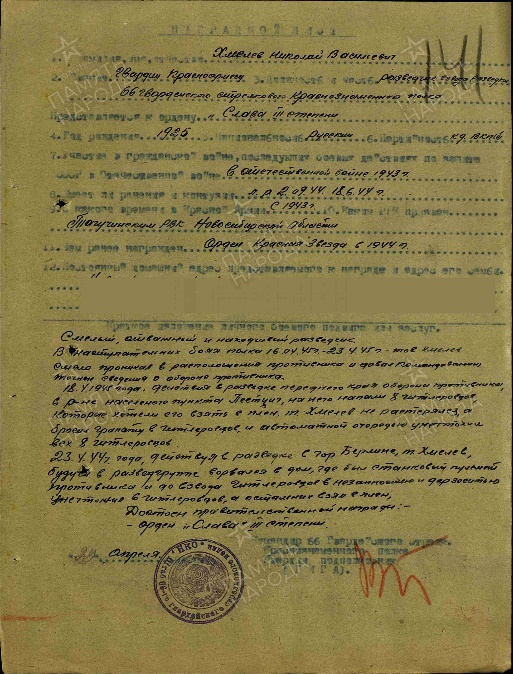 НАГРАДНОЙ ЛИСТ
1. Фамилия, имя, отчество Хмелев Николай Васильевич
2. Звание Гвардии Красноармеец 3. Должность и часть разведчик взвода разведки
66 гвардейского стрелкового Краснознаменного полка
Представляется к ордену "Слава" III степени
4. Год рождения 1925 5. Национальность Русский 6. Партийность к.д. ВКП/б
7. Участие в гражданской войне, последующих боевых действиях по защите
СССР и Отечественной войне в отечественной войне 1943 г.
8. Имеет ли ранения и контузии л.р. 2.09.44 18.6.44 г.
9. С какого времени в Красной Армии с 1943 г. 10. Каким РВК призван
Тогучинским РВК Новосибирской области
11. Чем ранее награжден Орден Красная Звезда в 1944 г.
12. Постоянный домашний адрес представляемого к награде и адрес его семьи
Краткое изложение личного боевого подвига или заслуг.
Смелый, отважный и находчивый разведчик.
В наступательных боях полка 16.04.45 г - 23.4.45 г - тов Хмелев
смело проникал в расположения противника и добывал командованию
ценные сведения о обороне противника.
18.4.1945 года, действуя в разведке переднего края обороны противника,
в р-не населеного пункта на него напали 8 гитлеровцев,
которые хотели его взять в плен. т. Хмелев не растерялся, а
бросил гранату в гитлеровцев, и автоматной очередью уничтожил
всех 8 гитлеровцев.
23.4.44 г. года, действуя в разведке в гор Берлине, т. Хмелев,
будучи в разведгруппе ворвался в дом, где был станковый пулемет
противника и до взвода гитлеровцев и внезапностью и дерзостью
уничтожив гитлеровцев, а остальных взял в плен,
Достоин правительственной награды: -
- орден "Слава" III степени.
Командир 66 Гвардейского стрелк.
Краснознаменного полка
Гвардии подполковник
апреля
НКО
ПАМЯТЬ НАРОДА